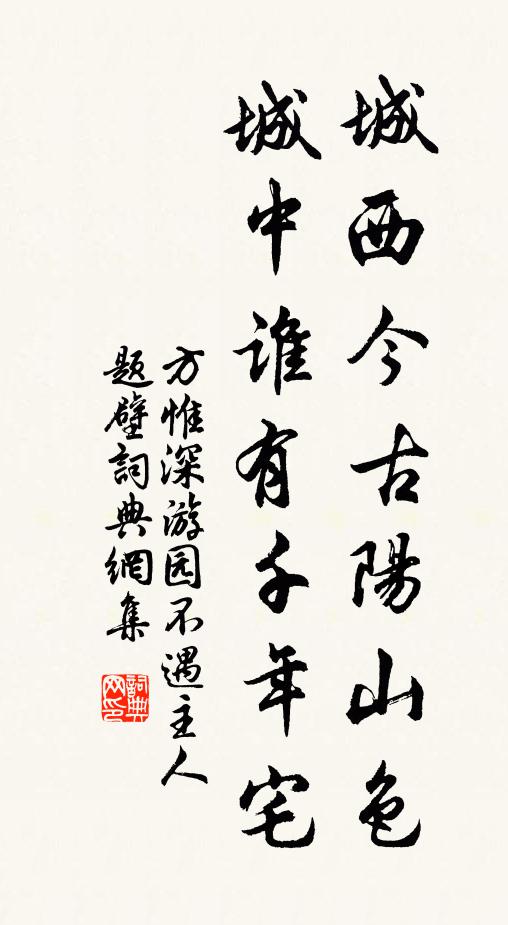 城西今古陽山色
城中誰有千年宅
方惟深游园不遇主人
题壁詞典網集
詞典
网印